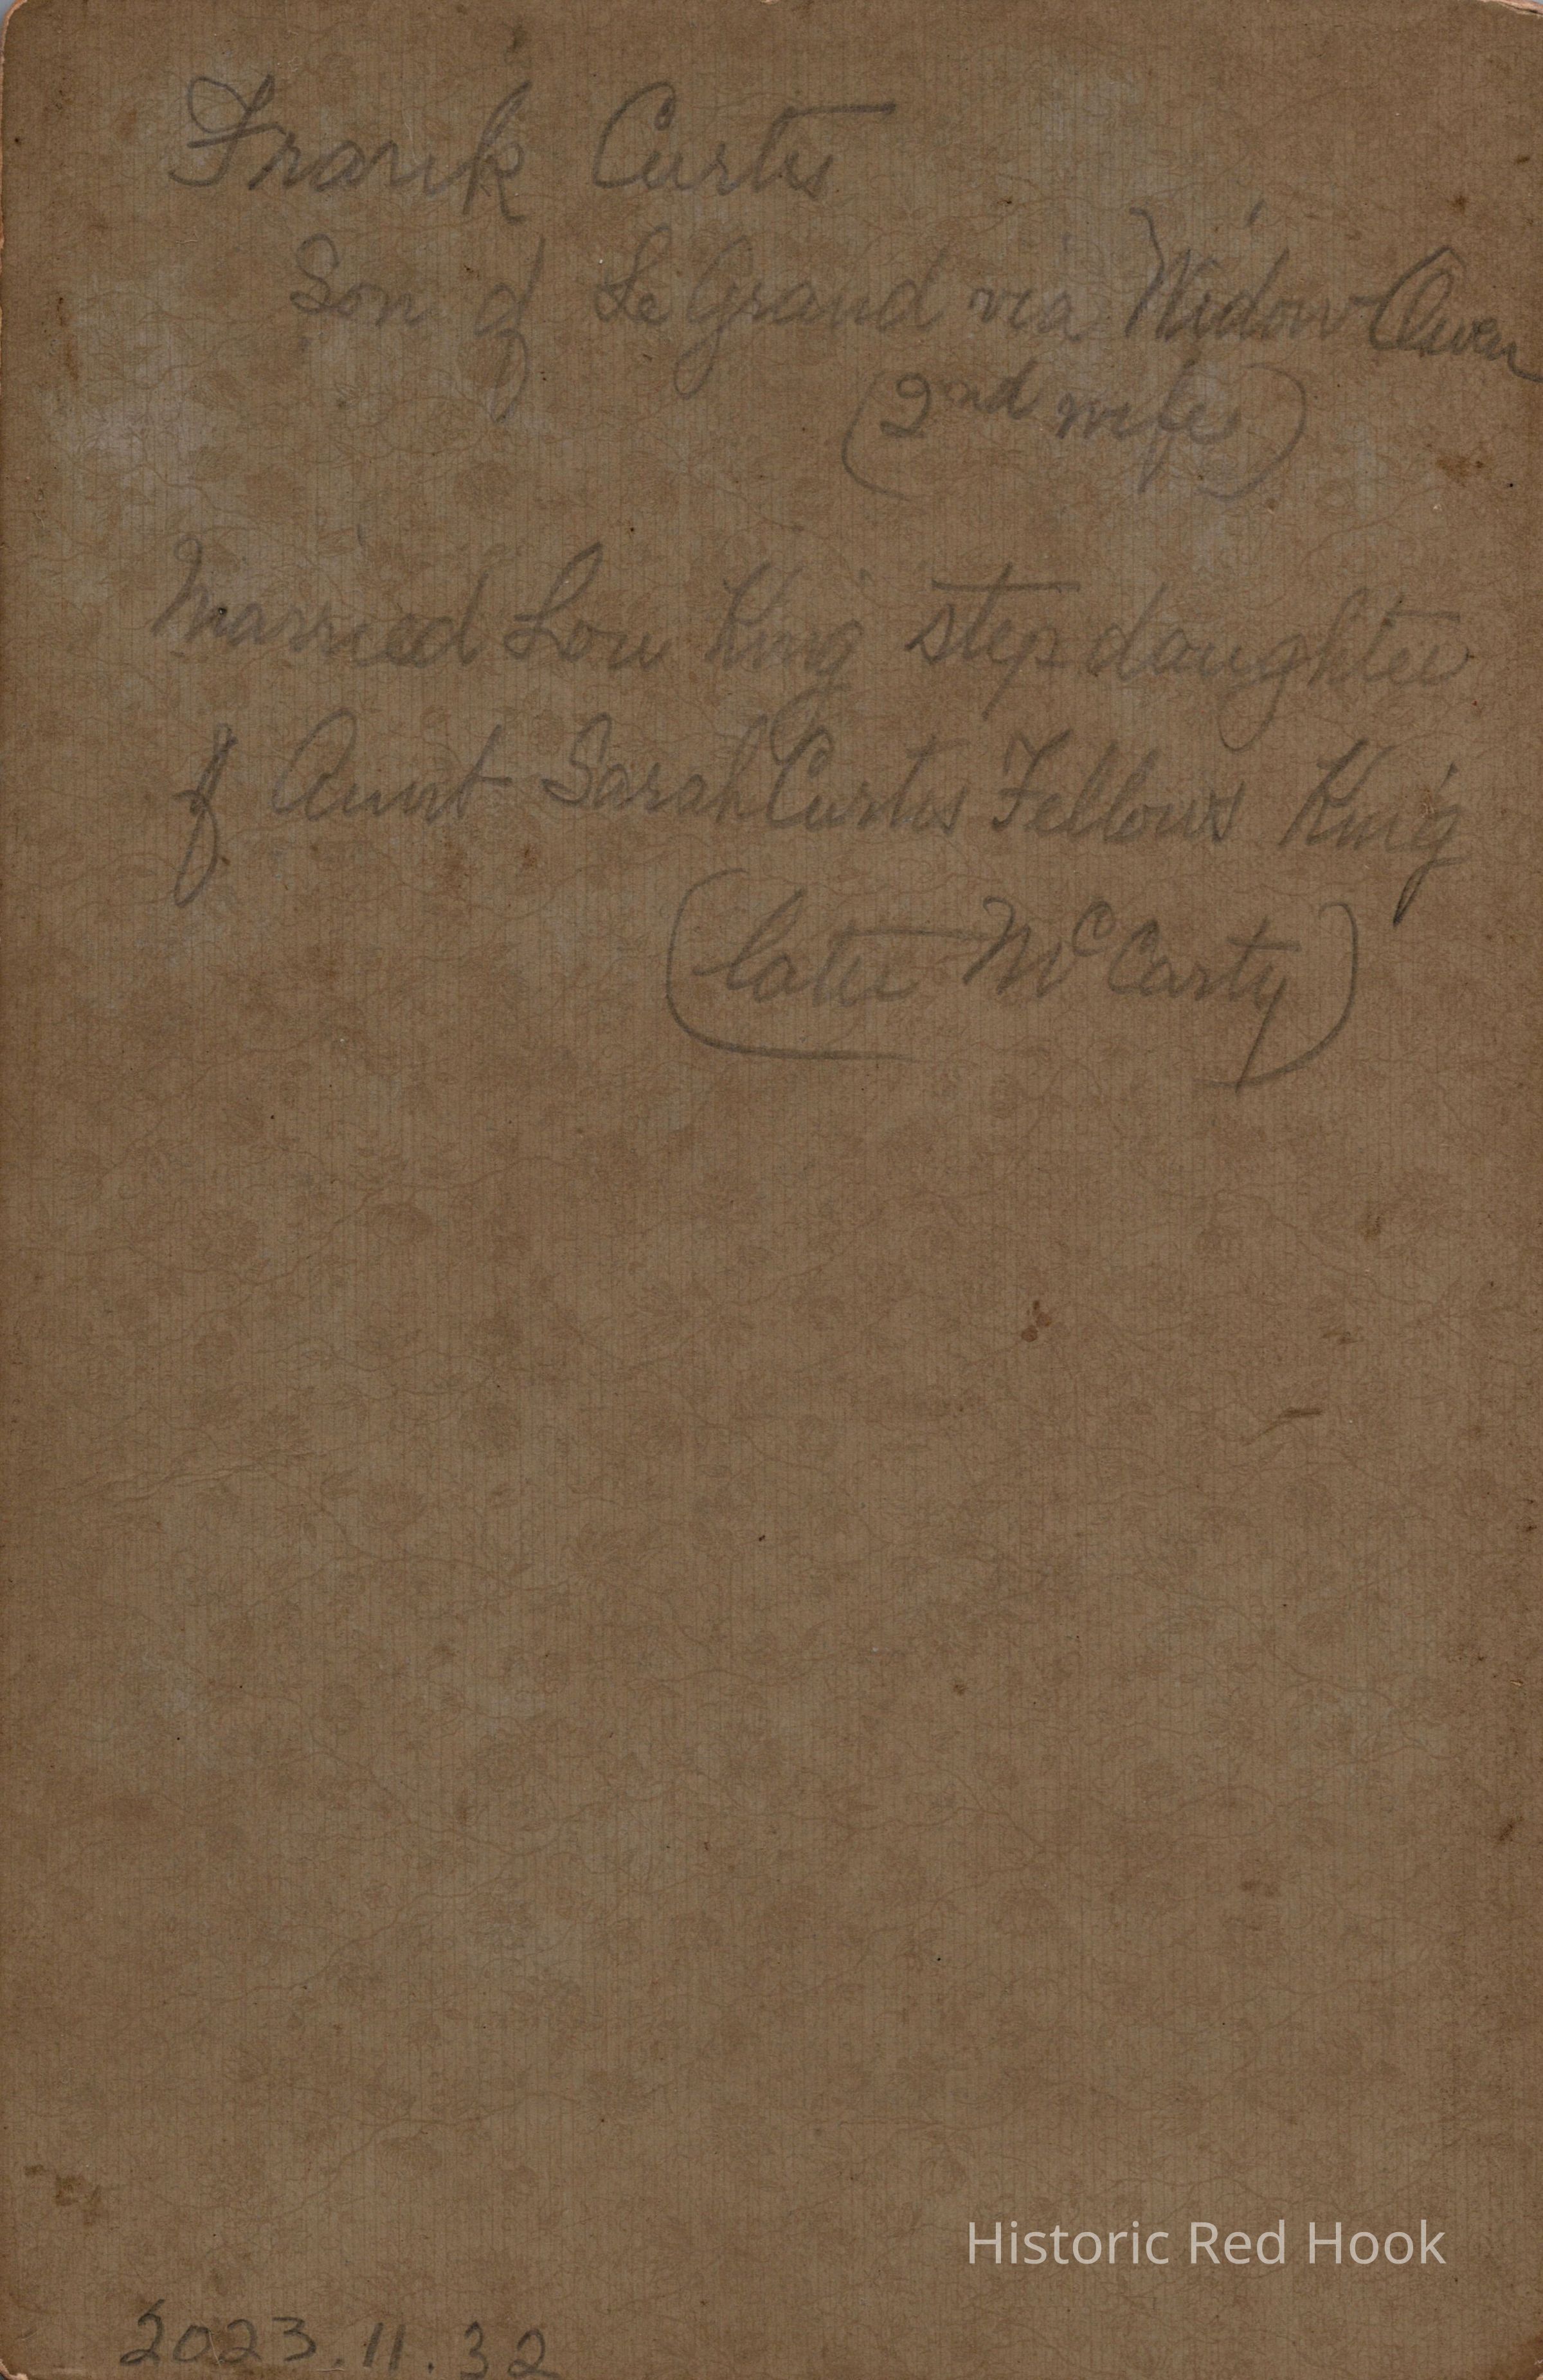 Frank Curtis
Son of LeGrand via Widow Owen
(2nd wife)
Married Lou King step daughter
of Aunt Sarah Curtis Fellows King
(later McCarty)
Historic Red Hook
2023.11.32